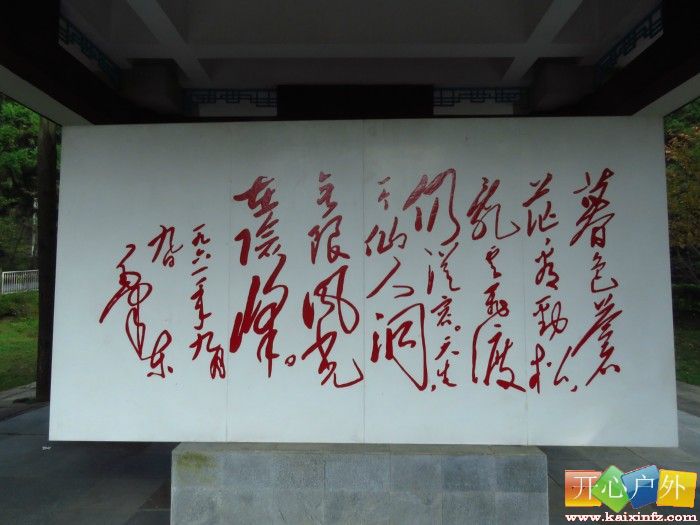 暮色蒼
茫看勁松，
乱云飞渡
仍從容。天生
一个仙人洞，
无限風光
在險峰。
一九六一年九月
九日
毛泽东
开心户外
www.kaixinfz.com